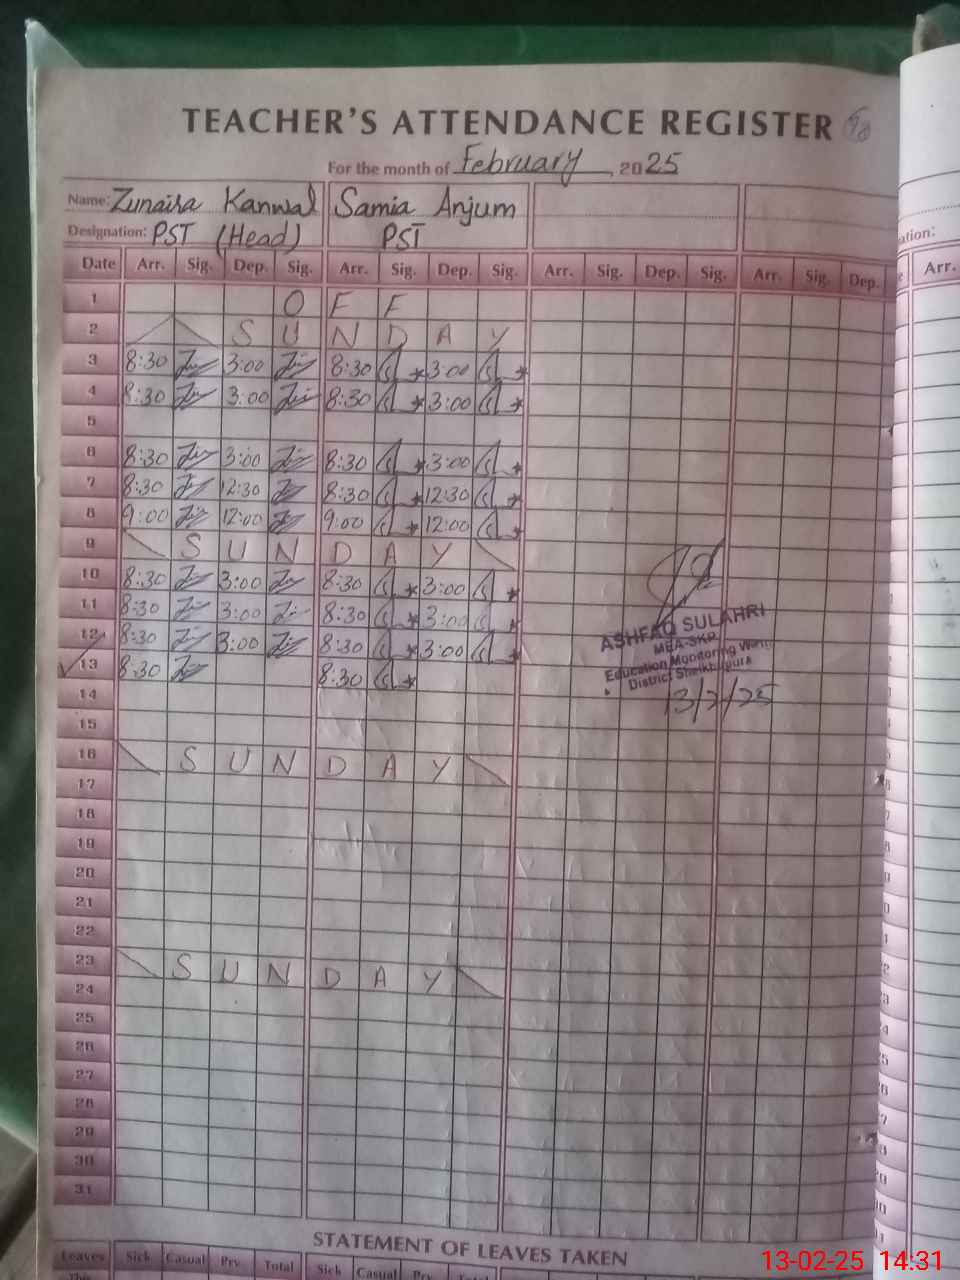 TEACHER'S ATTENDANCE REGISTER
For the month of February, 2025
Name: Zunaira Kanwal Samia Anjum
Designation: PST (Head) PST
Date Arr. Sig. Dep. Sig. Arr. Sig. Dep. Sig. Arr. Sig. Dep. Sig. Arr. Sig. Dep.
1 O F F
2 S U N D A Y
3 8:30 3:00 8:30 3:00
4 8:30 3:00 8:30 3:00
5
6 8:30 3:00 8:30 3:00
7 8:30 12:30 8:30 12:30
8 9:00 12:00 9:00 12:00
9 S U N D A Y
10 8:30 3:00 8:30 3:00
11 8:30 3:00 8:30 3:00
12 8:30 3:00 8:30 3:00
13 8:30 8:30
ASHFAQ SULAHRI
MEA-SKP
Education Monitoring
District Sheikhupura
13/2/25
14
15
16 S U N D A Y
17
18
19
20
21
22
23 S U N D A Y
24
25
26
27
28
29
30
31
STATEMENT OF LEAVES TAKEN
Leaves Sick Casual Prv. Total Sick Casual Prv. Total
This
ation:
Arr.
13-02-25 14:31